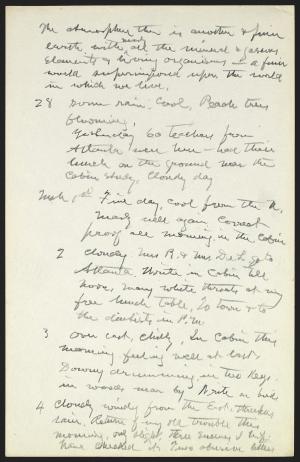 The atmosphere then is another & finer
earth with all the mineral & gaseous
elements & living organisms — a finer
world superimposed upon the world
in which we live.
28 Some rain, cool, Peach trees
blooming,
Yesterday 60 teachers from
Atlanta were here — had their
lunch on the ground near the
Cabin study, cloudy day
Mch 1st Fine day, cool from the N.
nearly well again Correct
proof all morning in the Cabin
2 Cloudy Mrs R. & Mrs De L. go to
Atlanta Write in Cabin till
noon, many white throats at my
free lunch table, To town & to
the dentists in P.M.
3 Over cast, chilly, In Cabin this
morning feeling well at last
Downy drumming in two keys
in woods near by Write on birds
4 Cloudy windy from the East, threatens
rain, Return of my old trouble this
morning, only slight, three
have checked it. Two